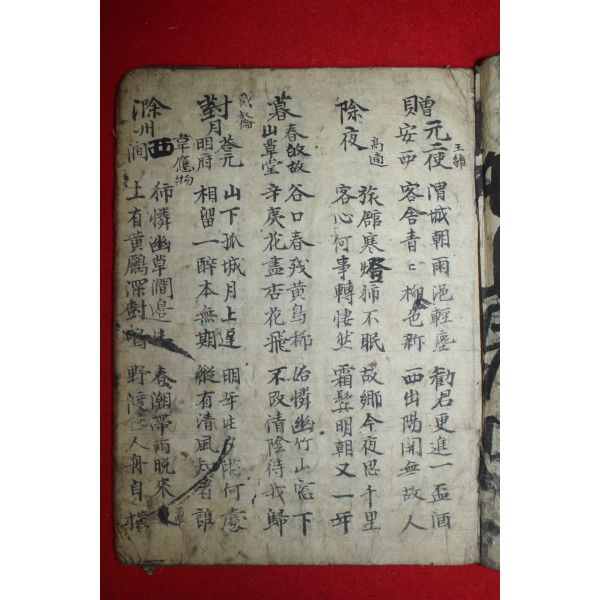 贈元二使安西
王維
渭城朝雨浥輕塵 勸君更進一盃酒
客舍青〻柳色新 西出陽關無故人
除夜
高適
旅館寒燈獨不眠 故鄉今夜思千里
客心何事轉悽然 霜鬢明朝又一年
暮春故故山草堂
谷口春殘黃鳥稀 始憐幽竹山窓下
辛夷花盡杏花飛 不改清陰待我歸
對月荅元明府
山下孤城月上遲 明年此夕 何處
相留一醉本無期 縱有清風知者誰
滁州西澗
韋應物
獨憐幽草澗邊生 春潮帶雨晚來
上有黃鸝深樹鳴 野渡無人舟自橫